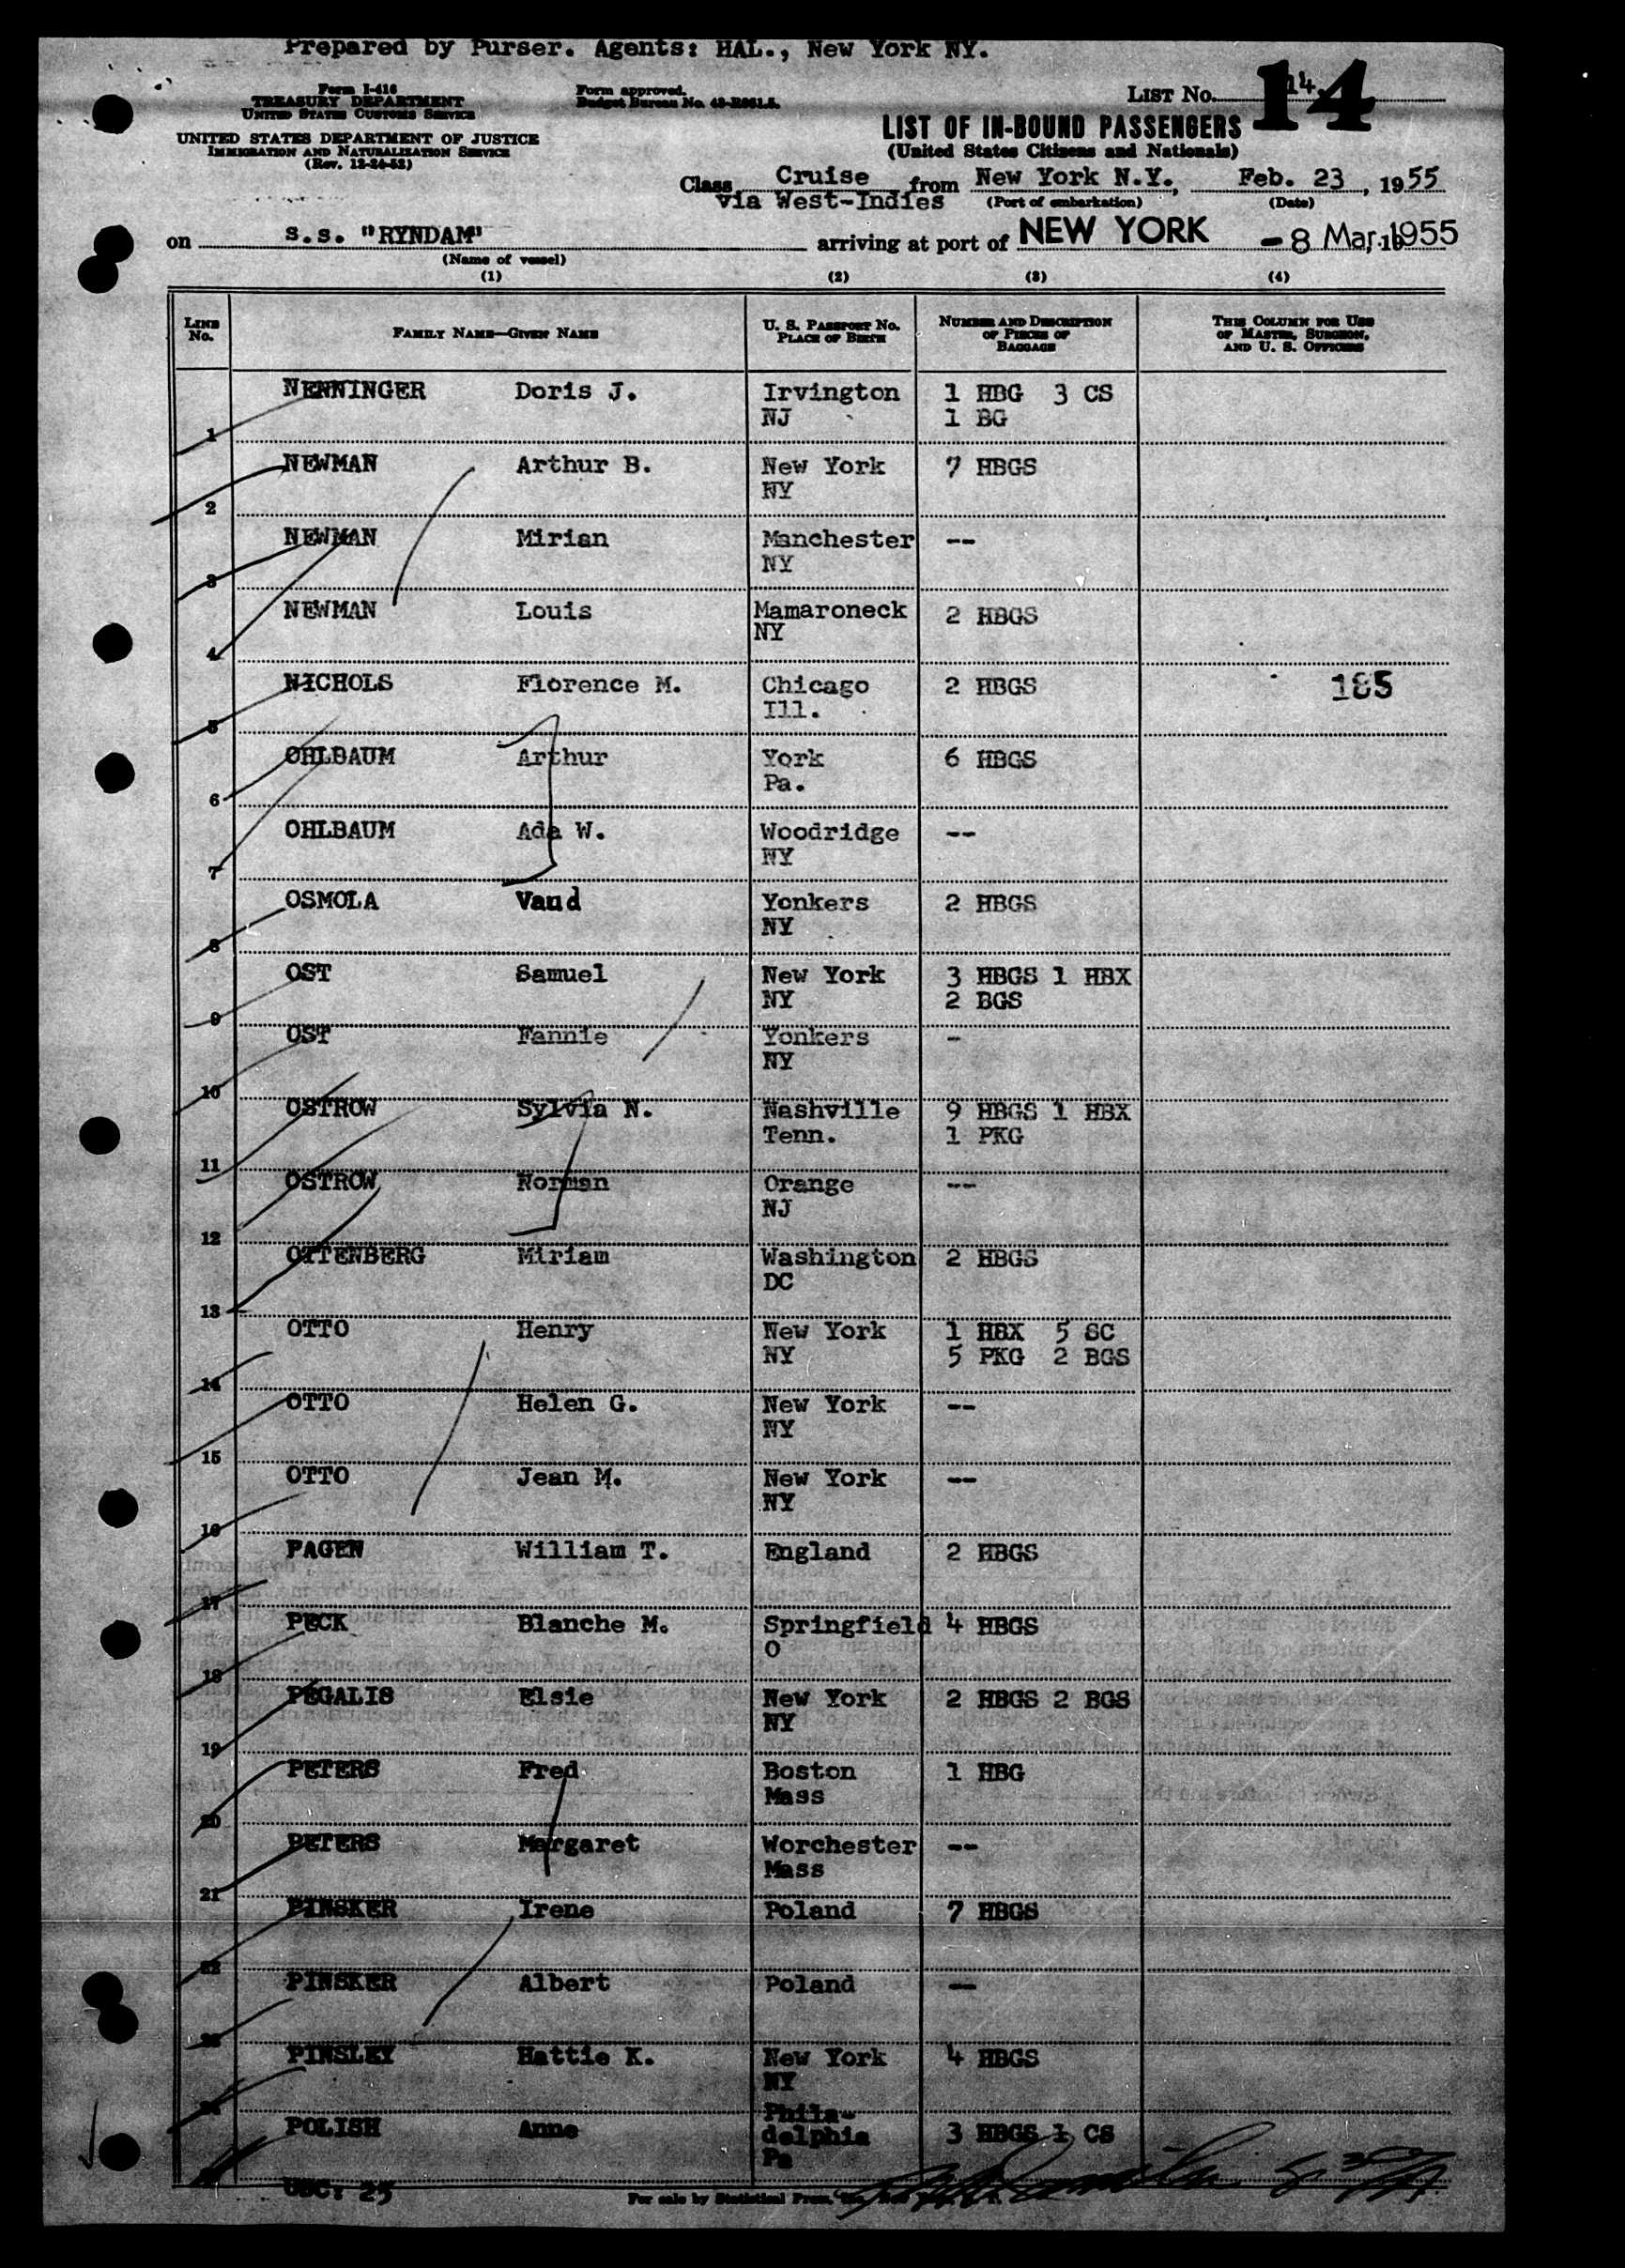 Prepared by Purser. Agents: HAL., New York NY.
Form I-418
TREASURY DEPARTMENT
UNITED STATES CUSTOMS SERVICE
UNITED STATES DEPARTMENT OF JUSTICE
IMMIGRATION AND NATURALIZATION SERVICE
(Rev. 12-24-52)
Form approved.
Budget Bureau No.
LIST No. 14.
14
LIST OF IN-BOUND PASSENGERS
(United States Citizens and Nationals)
Class Cruise from New York N.Y., Feb. 23, 1955
via West-Indies (Port of embarkation) (Date)
on s.s. "RYNDAM" arriving at port of NEW YORK -8 Mar, 1955
(Name of vessel)
(1) (2) (3) (4)
LINE No. FAMILY NAME—GIVEN NAME U. S. PASSPORT No. PLACE OF BIRTH NUMBER AND DESCRIPTION OF PIECES OF BAGGAGE THIS COLUMN FOR USE OF MASTER, SURGEON, AND U. S. OFFICERS
NENNINGER Doris J. Irvington 1 HBG 3 CS
1 NJ 1 BG
NEWMAN Arthur B. New York 7 HBGS
2 NY
NEWMAN Mirian Manchester --
3 NY
NEWMAN Louis Mamaroneck 2 HBGS
4 NY
NICHOLS Florence M. Chicago 2 HBGS 185
5 Ill.
OHLBAUM Arthur York 6 HBGS
6 Pa.
OHLBAUM Ada W. Woodridge --
7 NY
OSMOLA Vaud Yonkers 2 HBGS
8 NY
OST Samuel New York 3 HBGS 1 HBX
9 NY 2 BGS
OST Fannie Yonkers -
10 NY
OSTROW Sylvia N. Nashville 9 HBGS 1 HBX
11 Tenn. 1 PKG
OSTROW Norman Orange --
12 NJ
OTTENBERG Miriam Washington 2 HBGS
13 DC
OTTO Henry New York 1 HBX 5 SC
14 NY 5 PKG 2 BGS
OTTO Helen G. New York --
15 NY
OTTO Jean M. New York --
16 NY
PAGEN William T. England 2 HBGS
17
PECK Blanche M. Springfield 4 HBGS
18 O
PEGALIS Elsie New York 2 HBGS 2 BGS
19 NY
PETERS Fred Boston 1 HBG
20 Mass
PETERS Margaret Worchester --
21 Mass
PINSKER Irene Poland 7 HBGS
22
PINSKER Albert Poland --
23
PINSLEY Hattie K. New York 4 HBGS
24 NY
POLISH Anne Phila- delphia Pa 3 HBGS 1 CS
USC: 25
For sale by Statistical Press,